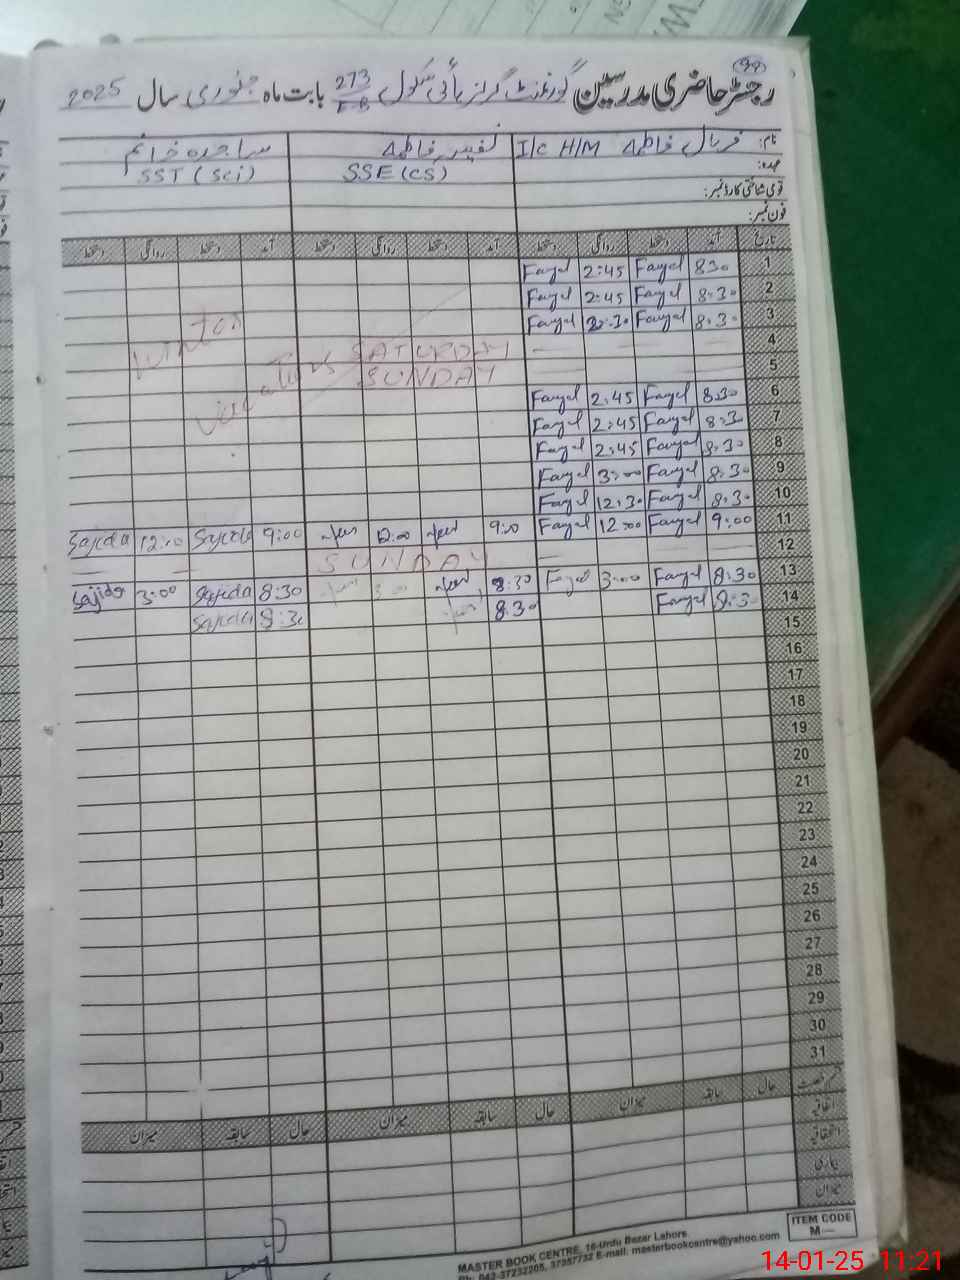 99
رجسٹر حاضری مدرسین گورنمنٹ گرلز ہائی سکول 273 E-B بابت ماہ جنوری سال 2025
نام: فریال فاطمہ I/C H/M فاطمہ ساجدہ خانم
عہدہ: SSE (CS) SST (Sci)
قومی شناختی کارڈ نمبر:
فون نمبر:
تاریخ آمد دستخط روانگی دستخط آمد دستخط روانگی دستخط آمد دستخط روانگی دستخط
1 8:30 Fayel 2:45 Fayel
2 8:30 Fayel 2:45 Fayel
3 8:30 Fayel :30 Fayel
4 SATURDAY
5 SUNDAY
winter vacations
6 8:30 Fayel 2:45 Fayel
7 8:30 Fayel 2:45 Fayel
8 8:30 Fayel 2:45 Fayel
9 8:30 Fayel 3:00 Fayel
10 8:30 Fayel 12:30 Fayel
11 9:00 Fayel 12:00 Fayel 9:00 12:00 9:00 Sajida 12:00 Sajida
12 SUNDAY
13 8:30 Fayel 3:00 Fayel 8:30 3:00 8:30 Sajida 3:00 Sajida
14 8:30 Fayel 8:30 8:30 Sajida
15
16
17
18
19
20
21
22
23
24
25
26
27
28
29
30
31
قسم رخصت حال سابقہ میزان حال سابقہ میزان حال سابقہ میزان
اتفاقیہ
استحقاقیہ
بیماری
میزان
ITEM CODE
M—
MASTER BOOK CENTRE, 16-Urdu Bazar Lahore
Ph: 042-37232205, 37357732 E-mail: masterbookcentre@yahoo.com
14-01-25 11:21